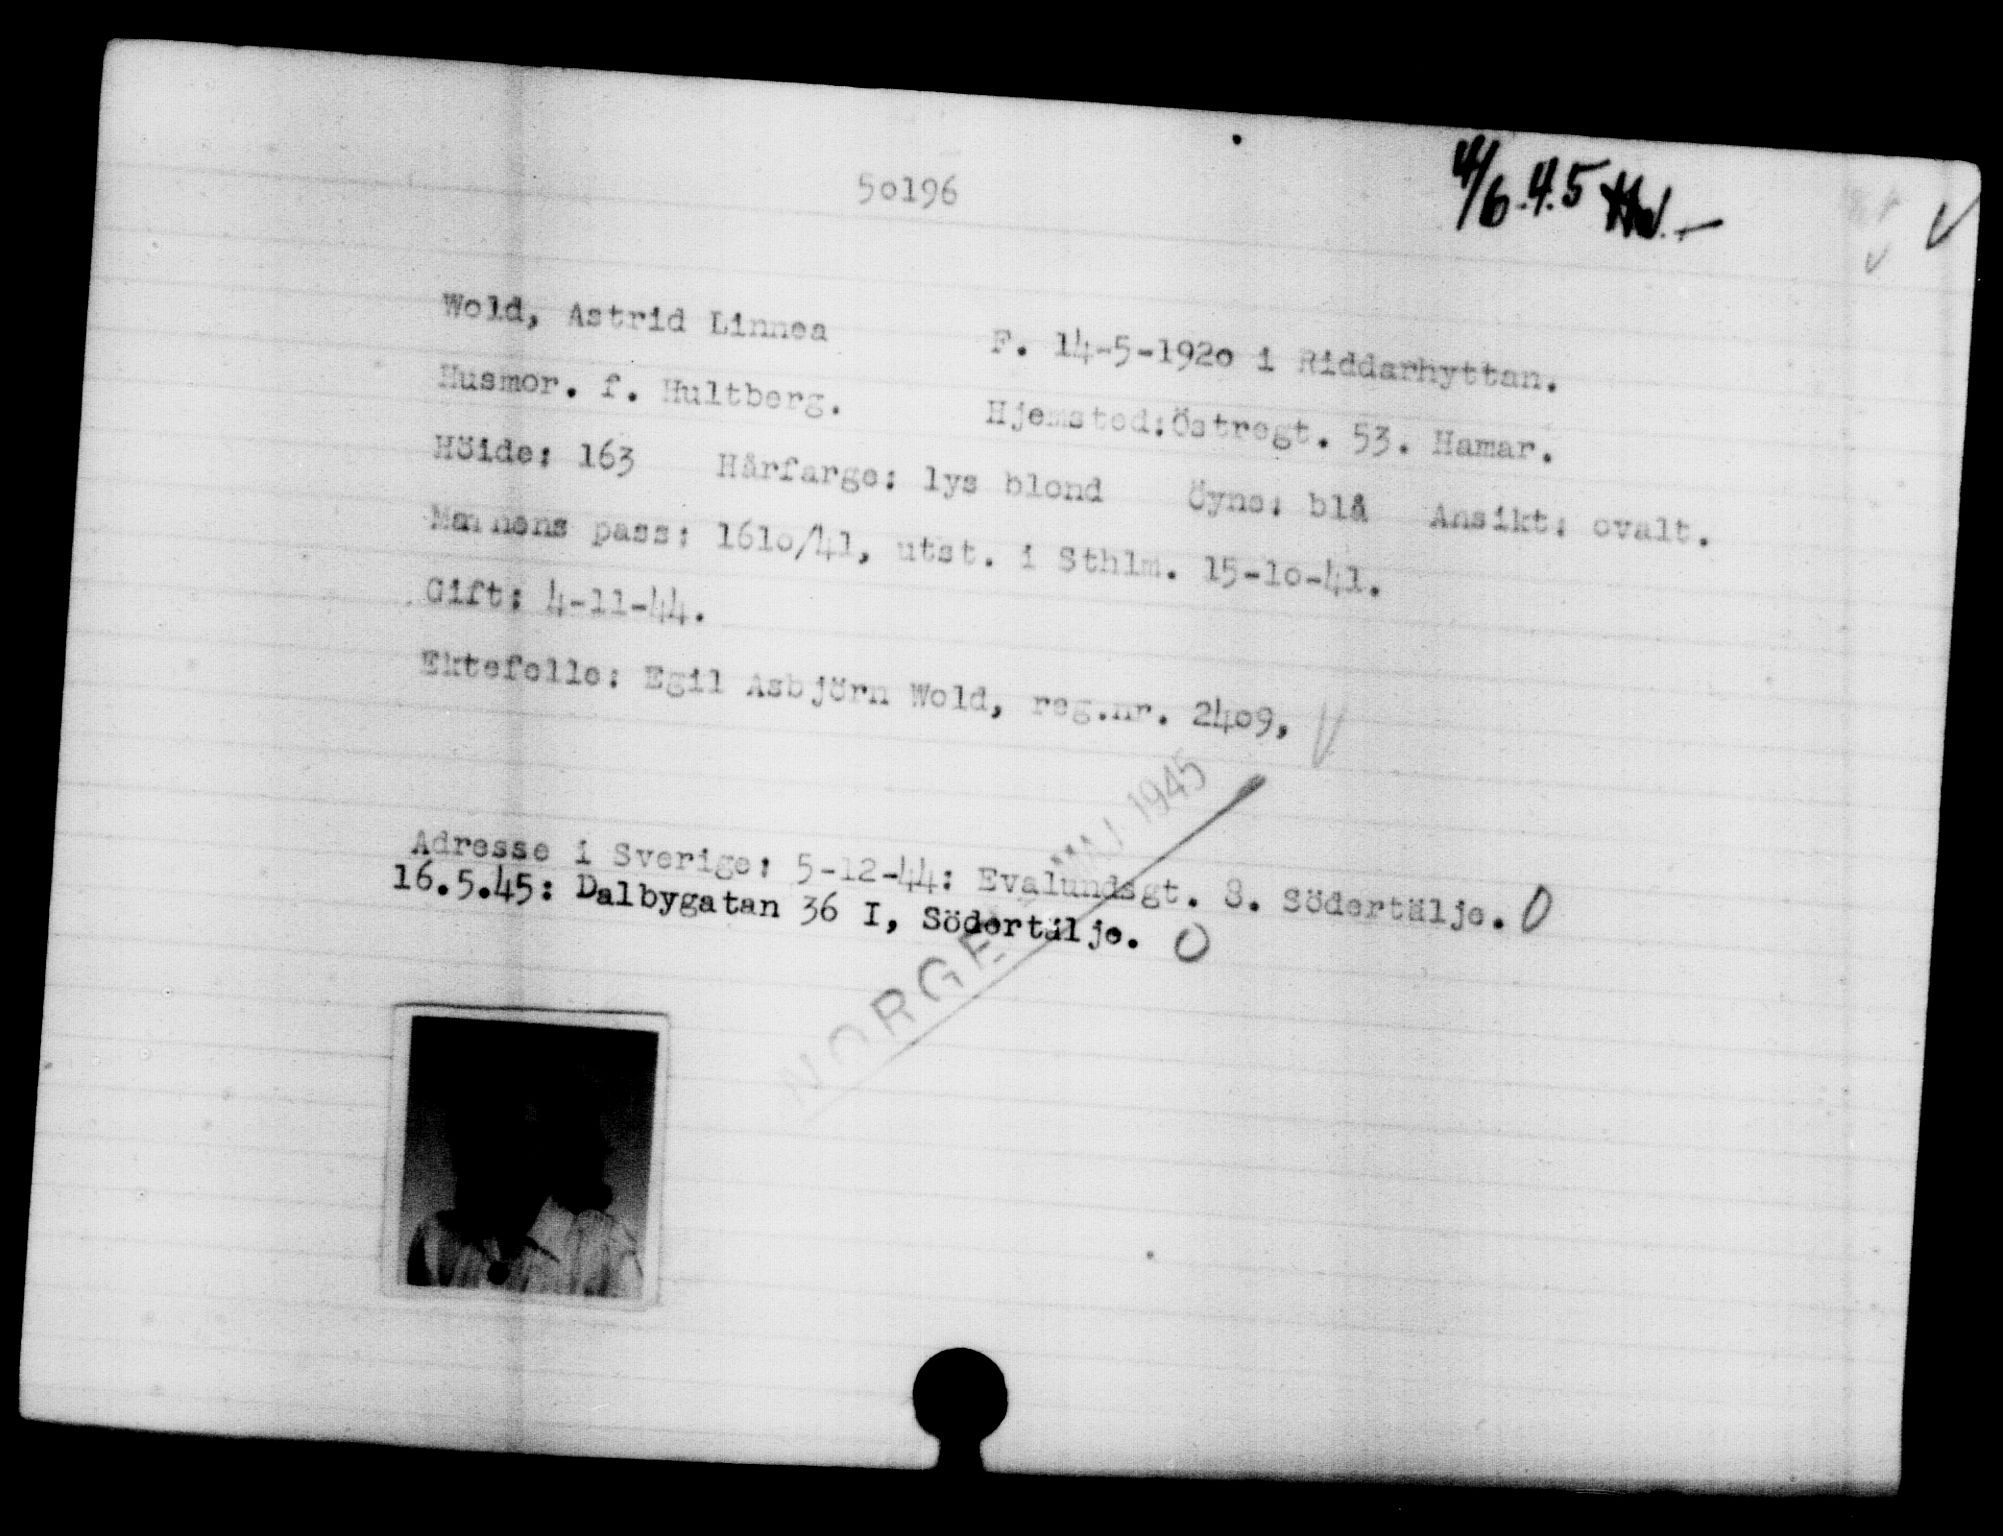 50196
4/6.45
Wold, Astrid Linnea F. 14-5-1920 i Riddarhyttan.
Husmor. f. Hultberg. Hjemsted:Östregt. 53. Hamar.
Höide: 163 Hårfarge: lys blond Öyne: blå Ansikt: ovalt.
Mannens pass: 1610/41, utst. i Sthlm. 15-10-41.
Gift: 4-11-44.
Ektefelle: Egil Asbjörn Wold, reg.nr. 2409,
Adresse i Sverige: 5-12-44: Evalundsgt. 8. Södertälje. O
16.5.45: Dalbygatan 36 I, Södertälje. O
NORGE MAJ 1945